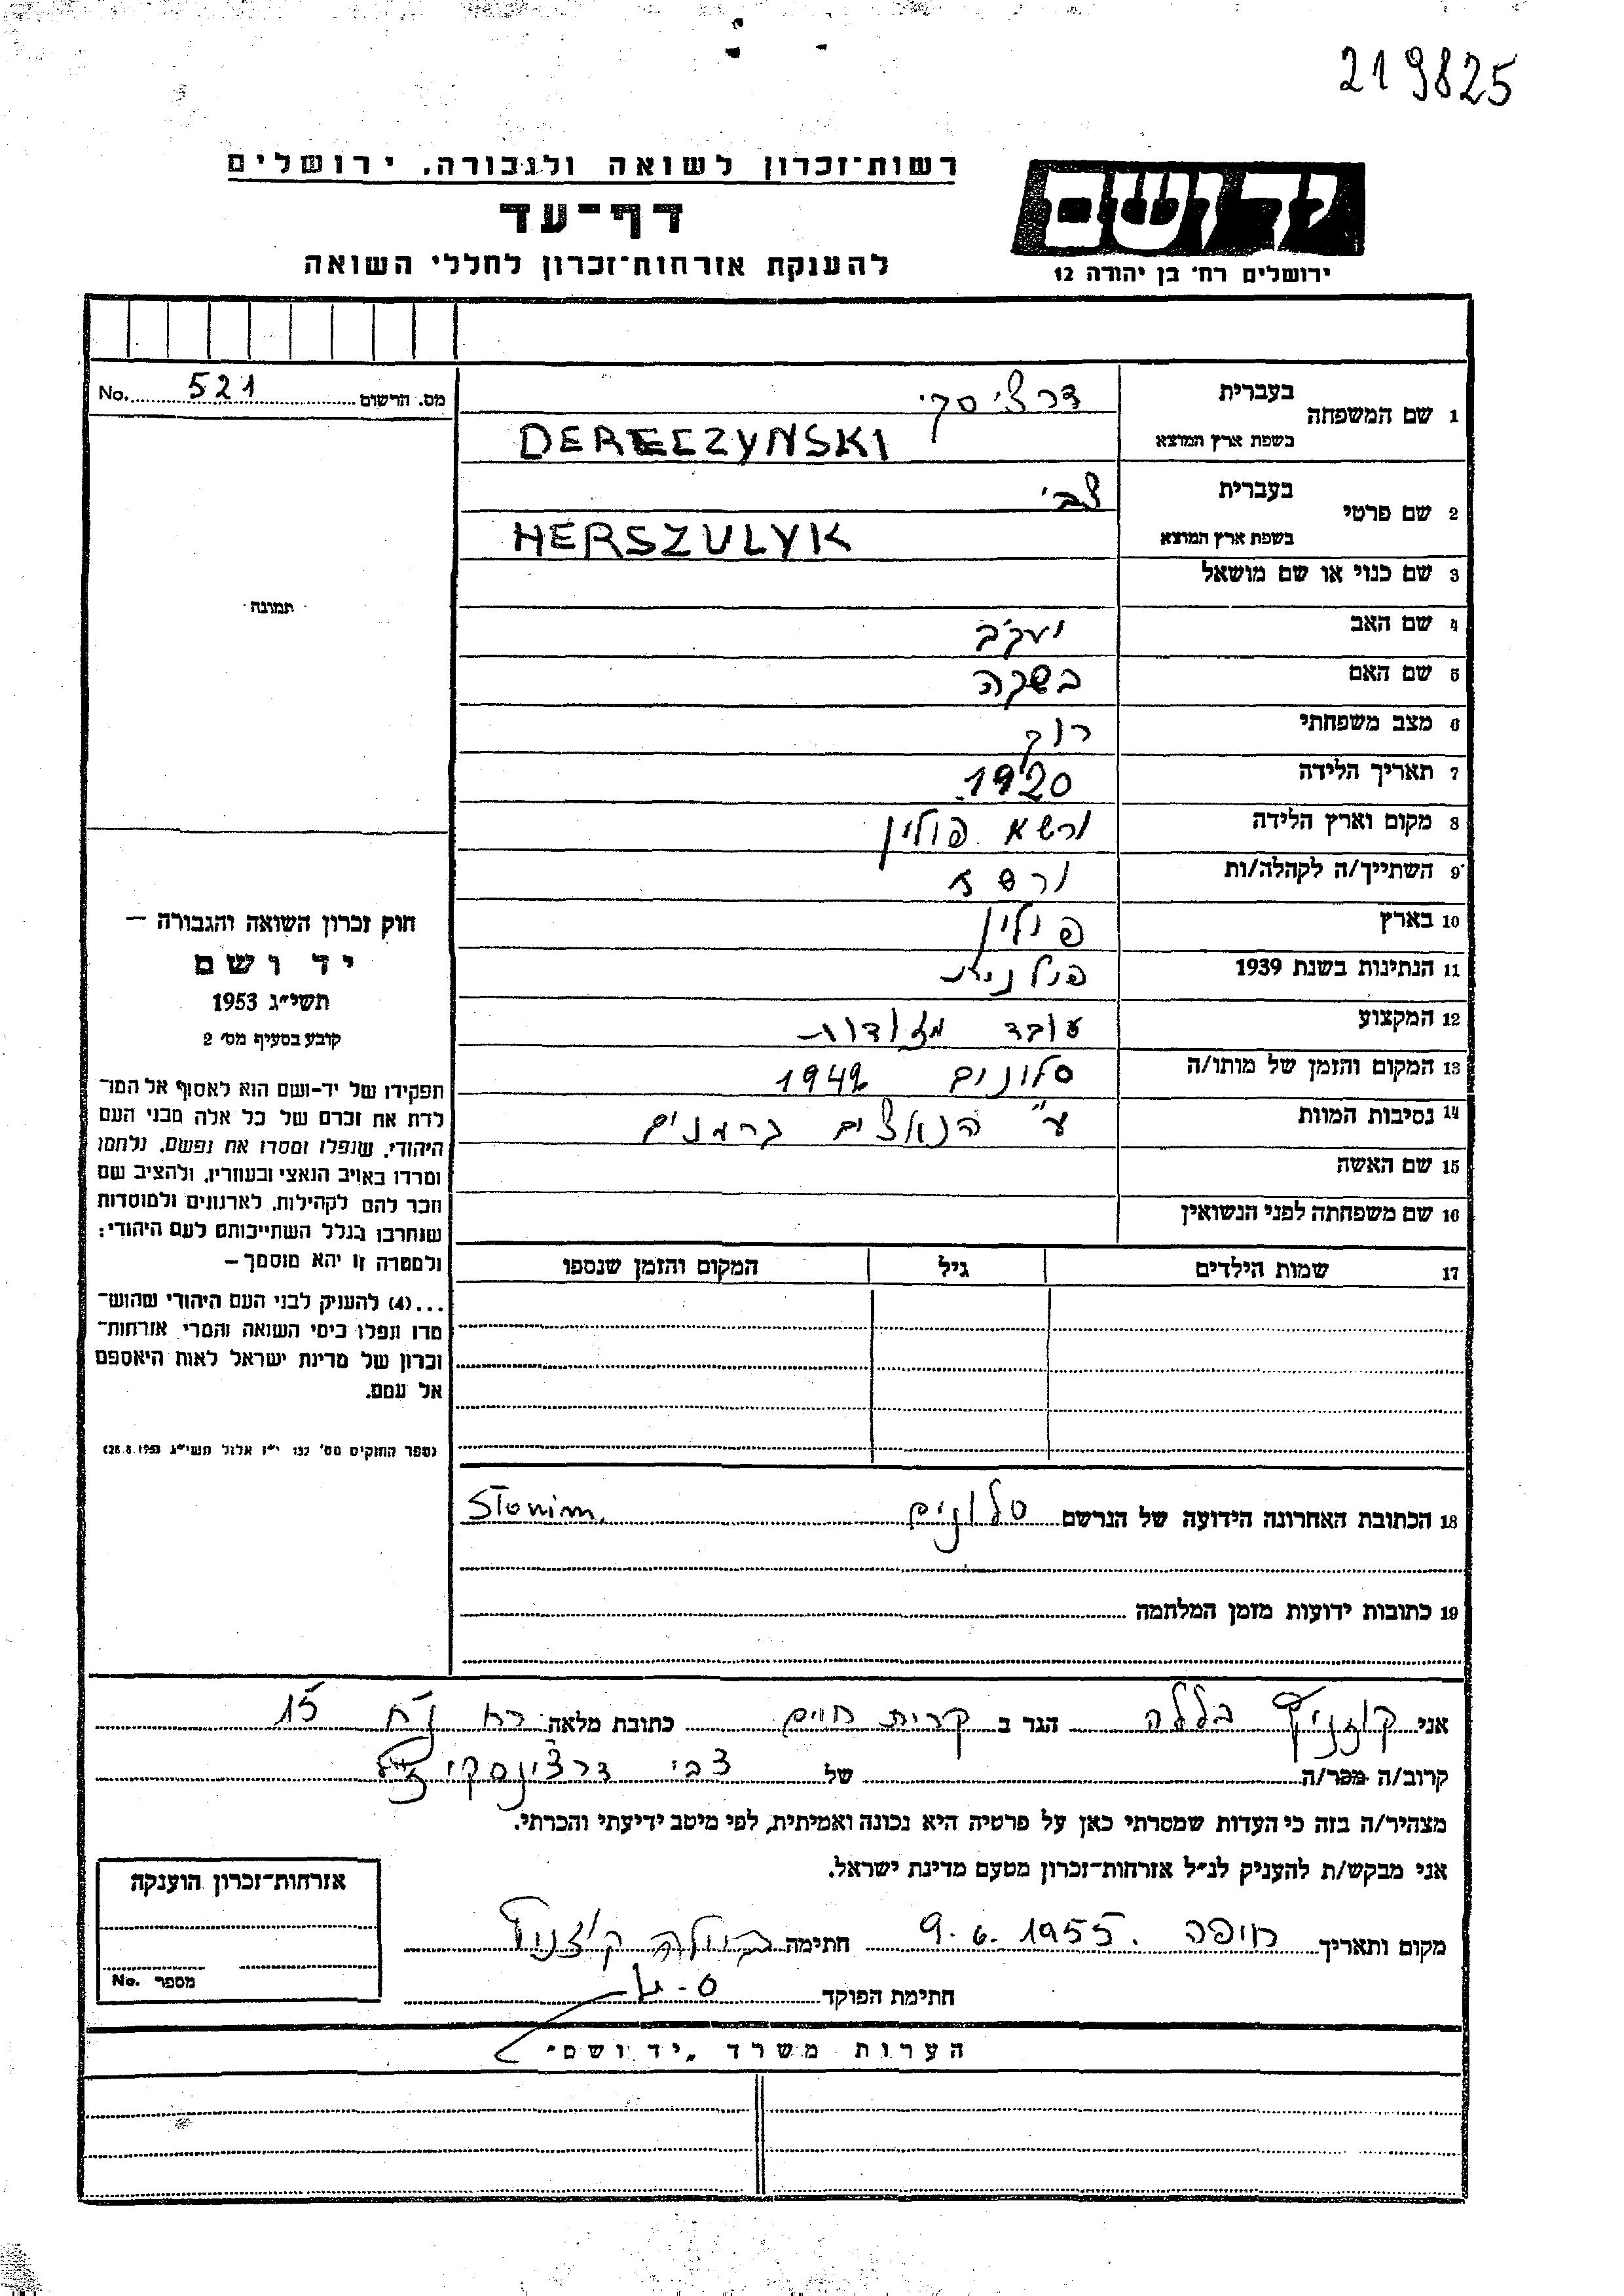 219825
רשות־זכרון לשואה ולגבורה. ירושלים
דף־עד
להענקת אזרחות־זכרון לחללי השואה
יד ושם
ירושלים רח' בן יהודה 12
No. 521 מס. הרשום
תמונה
חוק זכרון השואה והגבורה –
יד ושם
תשי״ג 1953
קובע בסעיף מס׳ 2
תפקידו של יד-ושם הוא לאסוף אל המו־
לדת את זכרם של כל אלה מבני העם
היהודי, שנפלו ומסרו את נפשם, נלחמו
ומרדו באויב הנאצי ובעוזריו, ולהציב שם
וזכר להם לקהילות, לארגונים ולמוסדות
שנחרבו בגלל השתייכותם לעם היהודי;
ולמטרה זו יהא מוסמך –
...(4) להעניק לבני העם היהודי שהוש־
מדו ונפלו בימי השואה והמרי אזרחות־
זכרון של מדינת ישראל לאות היאספם
אל עמם.
(ספר החוקים מס׳ 132 י״ז אלול תשי״ג 28.8.1953)
1 שם המשפחה בעברית דרצ'סקי
בשפת ארץ המוצא DERECZYNSKI
2 שם פרטי בעברית צבי
בשפת ארץ המוצא HERSZULYK
3 שם כנוי או שם מושאל
4 שם האב יעקב
5 שם האם בשקה
6 מצב משפחתי רוק
7 תאריך הלידה 1920
8 מקום וארץ הלידה ורשא פולין
9 השתייך/ה לקהלה/ות ורשא
10 בארץ פולין
11 הנתינות בשנת 1939 פולנית
12 המקצוע עובד מזודות
13 המקום והזמן של מותו/ה סלונים 1942
14 נסיבות המוות ע״י הנאצים גרמנים
15 שם האשה
16 שם משפחתה לפני הנשואין
17 שמות הילדים גיל המקום והזמן שנספו
18 הכתובת האחרונה הידועה של הנרשם סלונים Słonim
19 כתובות ידועות מזמן המלחמה
אני הגר ב קרית חיים כתובת מלאה רח 15
קרוב/ה מכר/ה של צבי דרצ'ינסקי ז״ל
מצהיר/ה בזה כי העדות שמסרתי כאן על פרטיה היא נכונה ואמיתית, לפי מיטב ידיעתי והכרתי.
אני מבקש/ת להעניק לנ״ל אזרחות־זכרון מטעם מדינת ישראל.
מקום ותאריך חיפה. 9.6.1955 חתימה
חתימת הפוקד
אזרחות־זכרון הוענקה
מספר No.
הערות משרד „יד ושם״